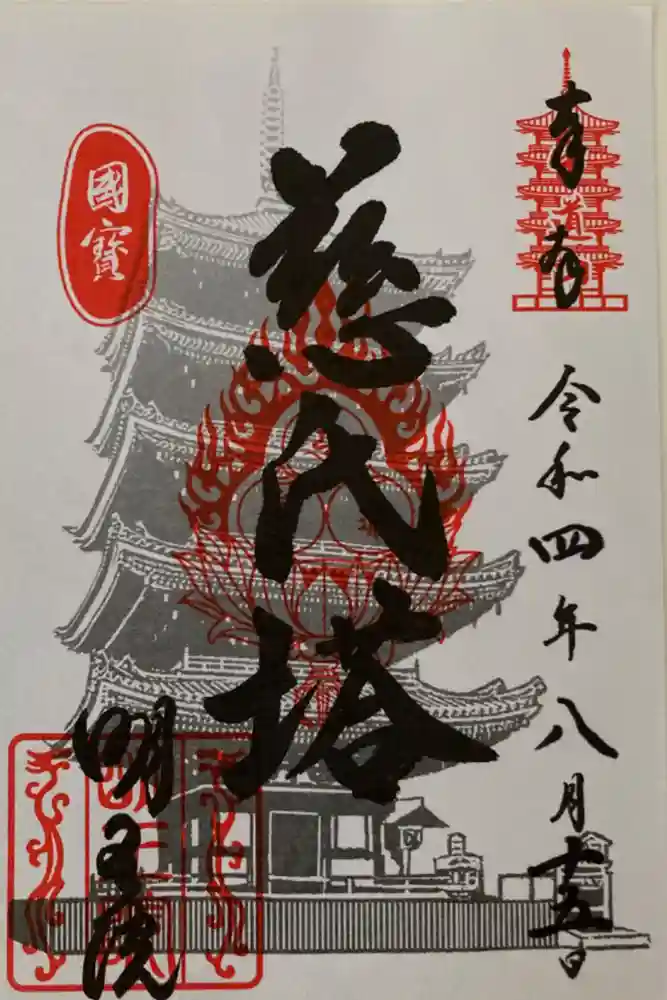 奉拝
令和四年八月十五日
國寶
慈氏塔
明王院